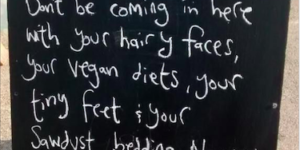 Dont be coming in here
with your hairy faces,
your vegan diets, your
tiny feet & your
Sawdust bedding